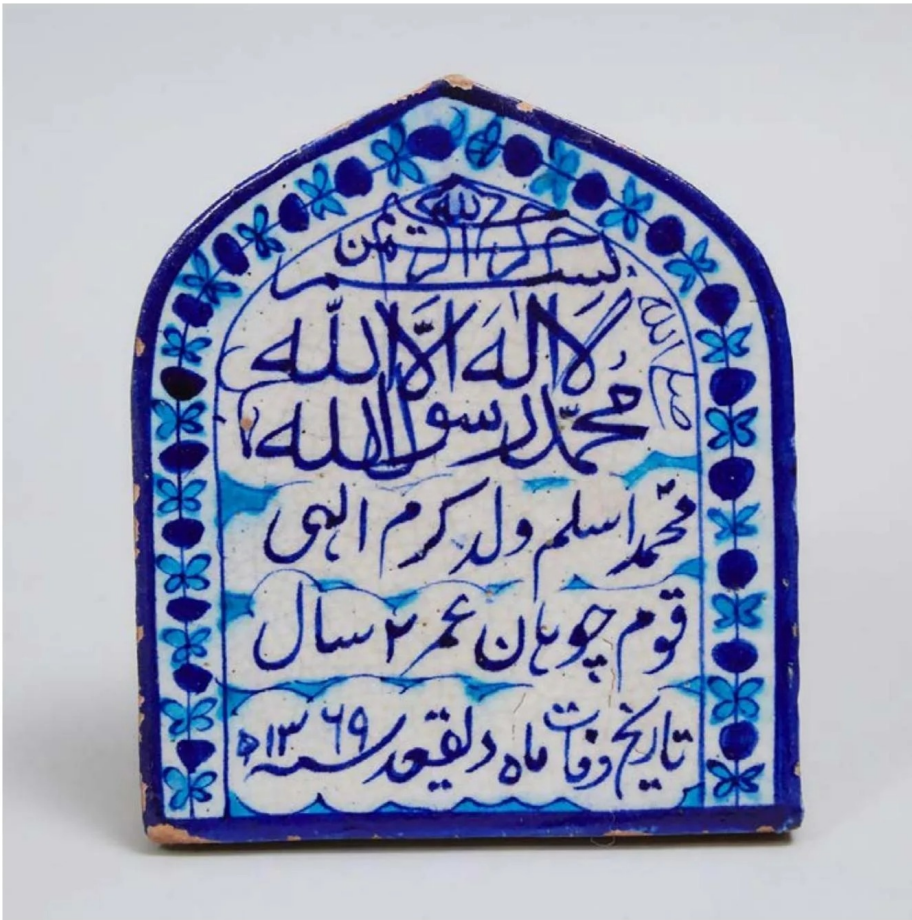 بسم الله الرحمن الرحیم
لا اله الا الله
محمد رسول الله
صلی الله
محمد اسلم ولد کرم الہی
قوم چوہان عمر ۲ سال
تاریخ وفات ماہ دلیقعد سنہ ۱۳۶۹ھ